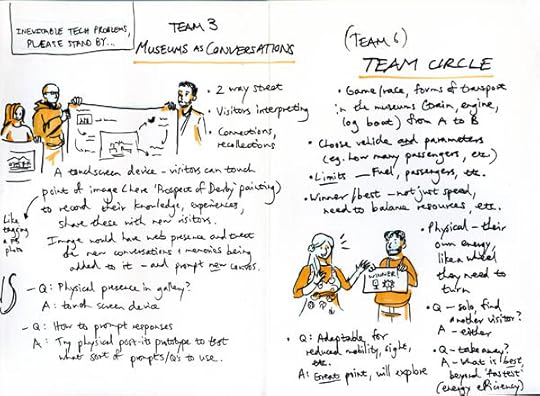 INEVITABLE TECH PROBLEMS,
PLEASE STAND BY...
TEAM 3
MUSEUMS AS CONVERSATIONS
• 2 way street
• Visitors interpreting
• Connections,
recollections
A touchscreen device – visitors can touch
point of image (here 'Prospect of Derby' painting)
to record their knowledge, experiences,
share these with new visitors.
Like
tagging
a FB
photo
Image would have web presence and tweet
new conversations + memories being
added to it – and prompt new convos.
– Q: Physical presence in gallery?
A: touch screen device
– Q: How to prompt responses
A: Try physical post-its prototype to test
what sort of prompts/Qs to use.
(TEAM 6)
TEAM CIRCLE
• Game/race, forms of transport
in the museums (train, engine,
log boat) from A to B
• Choose vehicle and parameters
(eg. how many passengers, etc.)
• Limits – Fuel, passengers, etc.
• Winner/best – not just speed,
need to balance resources, etc.
WINNER!
• Physical – their
own energy,
like a wheel
they need to
turn
• Q – solo, find
another visitor?
A – either
• Q – takeaway?
A – what is best,
beyond 'fastest'
(energy efficiency)
• Q: Adaptable for
reduced mobility, sight,
etc.
A: Great point, will explore